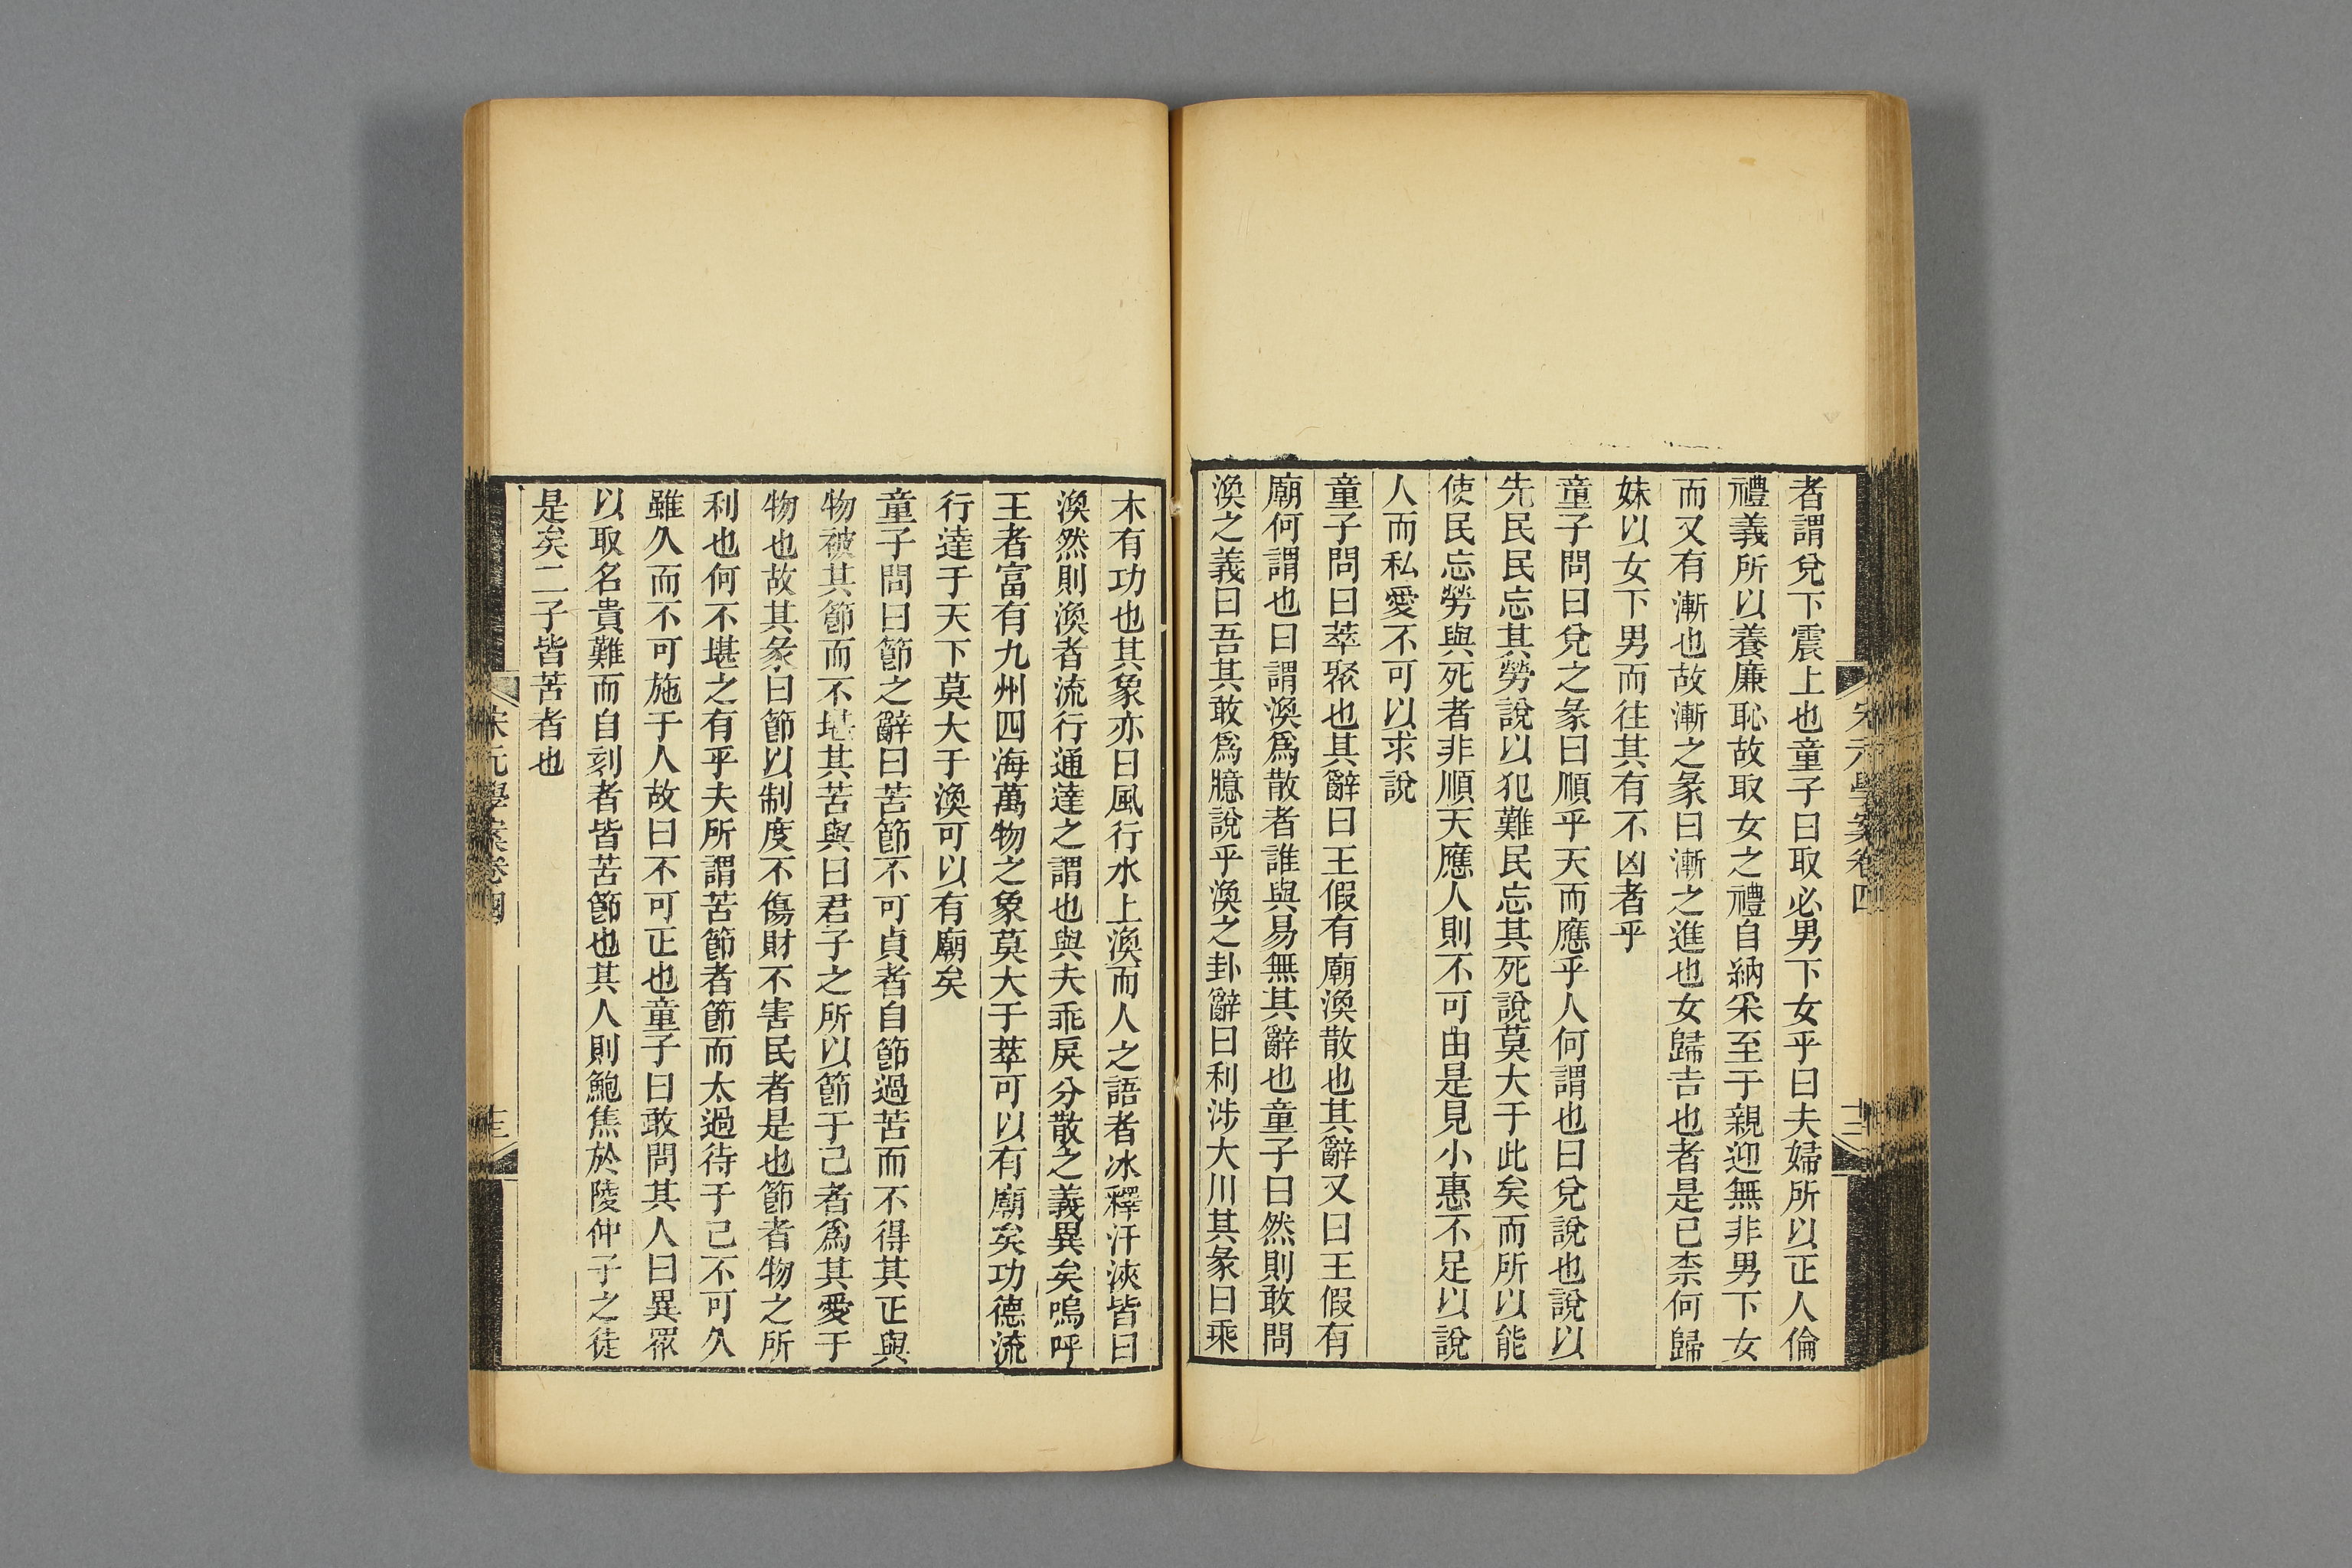 宋元學案卷四
十二
者謂兌下震上也童子曰取必男下女乎曰夫婦所以正人倫
禮義所以養廉恥故取女之禮自納采至于親迎無非男下女
而又有漸也故漸之彖曰漸之進也女歸吉也者是已柰何歸
妹以女下男而往其有不凶者乎
童子問曰兌之彖曰順乎天而應乎人何謂也曰兌說也說以
先民民忘其勞說以犯難民忘其死說莫大于此矣而所以能
使民忘勞與死者非順天應人則不可由是見小惠不足以說
人而私愛不可以求說
童子問曰萃聚也其辭曰王假有廟渙散也其辭又曰王假有
廟何謂也曰謂渙爲散者誰與易無其辭也童子曰然則敢問
渙之義曰吾其敢爲臆說乎渙之卦辭曰利涉大川其彖曰乘
木有功也其象亦曰風行水上渙而人之語者冰釋汗浹皆曰
渙然則渙者流行通達之謂也與夫乖戾分散之義異矣嗚呼
王者富有九州四海萬物之象莫大于萃可以有廟矣功德流
行達于天下莫大于渙可以有廟矣
童子問曰節之辭曰苦節不可貞者自節過苦而不得其正與
物被其節而不堪其苦與曰君子之所以節于己者爲其愛于
物也故其彖曰節以制度不傷財不害民者是也節者物之所
利也何不堪之有乎夫所謂苦節者節而太過待于己不可久
雖久而不可施于人故曰不可正也童子曰敢問其人曰異眾
以取名貴難而自刻者皆苦節也其人則鮑焦於陵仲子之徒
是矣二子皆苦者也
宋元學案卷四